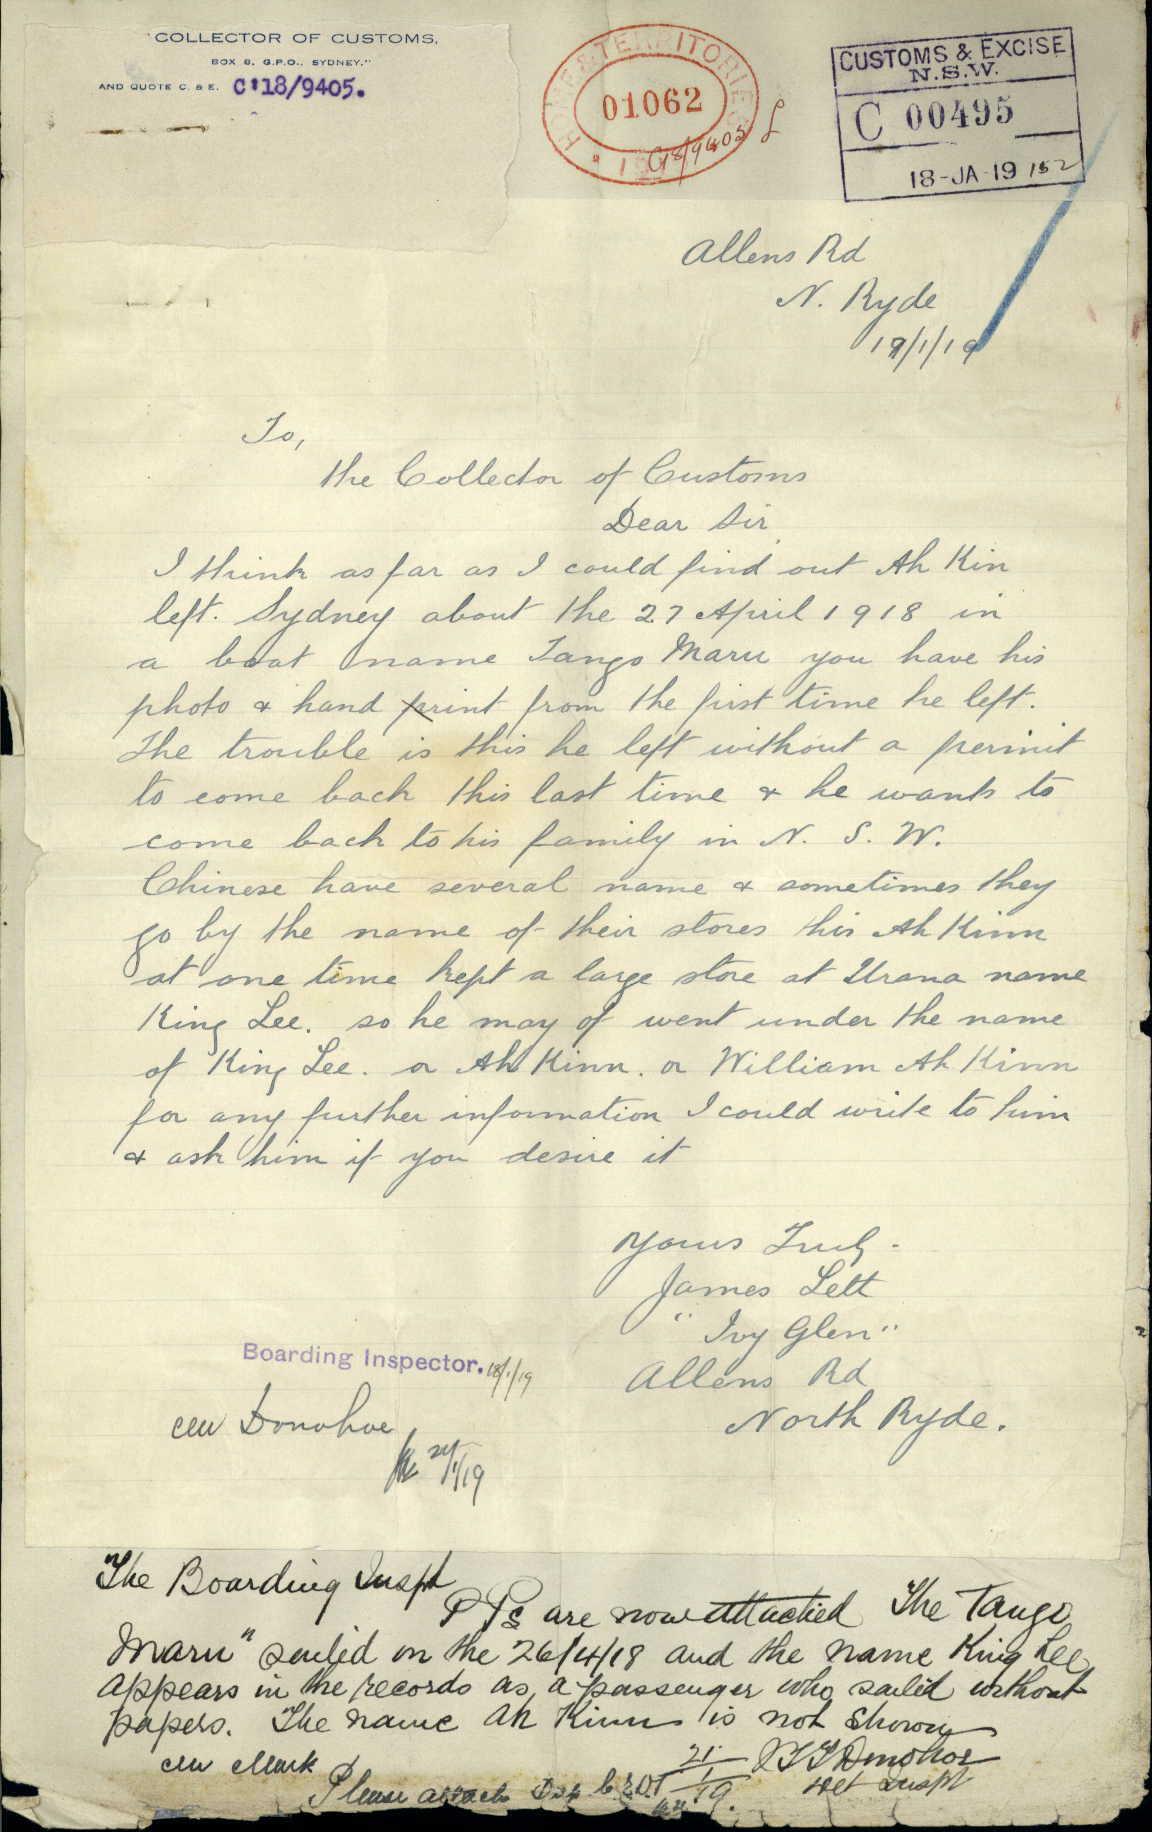 'COLLECTOR OF CUSTOMS,
BOX 8. G.P.O., SYDNEY."
AND QUOTE C. & E. C:18/9405.
HOME & TERRITORIES
01062
C18/9405
CUSTOMS & EXCISE
N.S.W.
C 00495
18-JA-19 152
Allens Rd
N. Ryde
17/1/19
To,
the Collector of Customs
Dear Sir
I think as far as I could find out Ah Kin
left. Sydney about the 27 April 1918 in
a boat name Tango Maru you have his
photo & hand print from the first time he left.
The trouble is this he left without a permit
to come back this last time & he wants to
come back to his family in N. S. W.
Chinese have several name & sometimes they
go by the name of their stores this Ah Kinn
at one time kept a large store at Urana name
King Lee. so he may of went under the name
of King Lee. or Ah Kinn. or William Ah Kinn
for any further information I could write to him
& ask him if you desire it
Yours Truly.
James Lett
"Ivy Glen"
Allens Rd
North Ryde.
Boarding Inspector. 18/1/19
Donohoe
20/1/19
The Boarding Inspt
PPs are now attached The Tango
Maru" sailed on the 26/4/18 and the name King Lee
appears in the records as a passenger who sailed without
papers. The name Ah Kinn is not shown
21/1/19 Donohoe
Det Inspt
Please attach